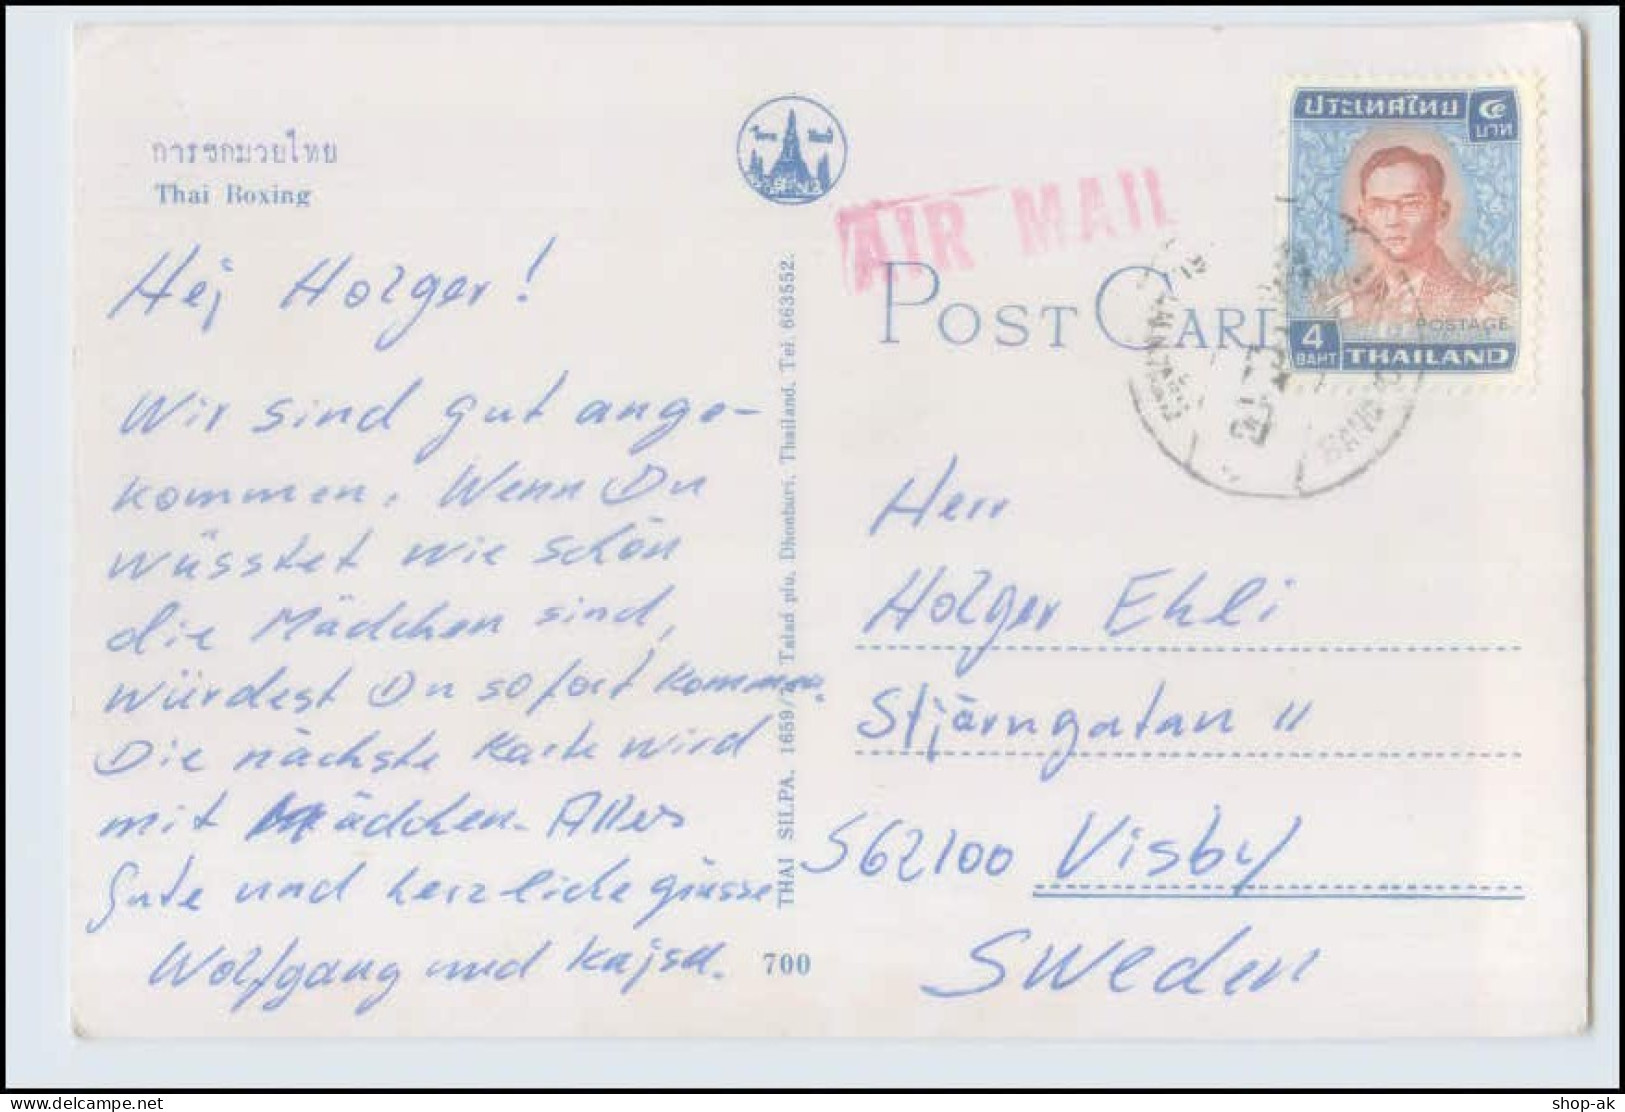 การชกมวยไทย
Thai Boxing
Hej Holger!
Wir sind gut ange-
kommen. Wenn Du
wüsstet wie schön
die Mädchen sind,
würdest Du sofort kommen.
Die nächste Karte wird
mit Mädchen. Alles
Gute und herzliche grüsse
Wolfgang und Kajsa.
THAI SILPA, 1659/2 Talad plu, Dhonburi, Thailand. Tel. 663552.
700
AIR MAIL
POST CARD
ประเทศไทย ๔
บาท
POSTAGE
4
BAHT THAILAND
BANGKOK
Herr
Holger Ehli
Stjärngatan 11
S62100 Visby
Sweden
shop-ak